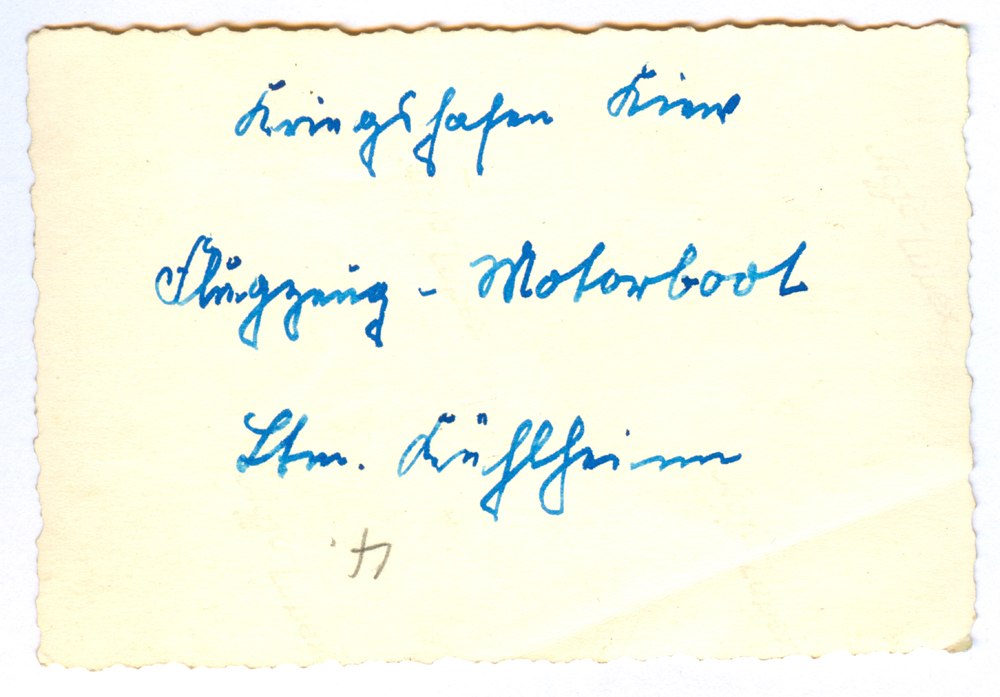 Kriegshafen Kiew
Flugzeug - Motorboot
Ltn. Kühlheim
4.